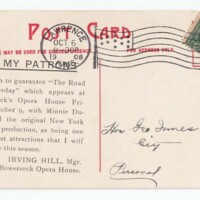 POST CARD
MAY BE USED FOR
FOR ADDRESS ONLY
LAWRENCE
OCT 6
19 08
MY PATRONS
k to guarantee "The Road
erday" which appears at
ck's Opera House Fri
mber 9, with Minnie Du
d the original New York
production, as being one
at attractions that I will
is season.
IRVING HILL, Mgr.
Bowersock Opera House.
Hon Geo Innes
City
Personal